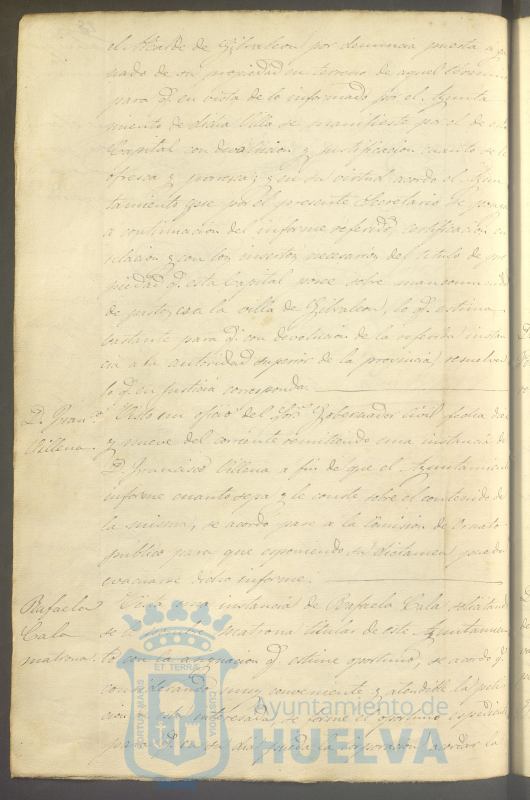 el Alcalde de Gibraleon por denuncia puesta a ga
nado de su propiedad en terreno de aquel término
para q.e en vista de lo informado por el Ayunta
miento de dicha Villa se manifieste por el de esta
Capital con devolucion y justificacion cuanto se le
ofresca y paresca; y en su virtud acordó el Ayun
tamiento que por el presente Secretario se ponga
a continuacion del informe referido, certificacion en
relacion y con los insertos necesarios del titulo de pro
piedad q.e esta Capital posee sobre mancomunidad
de pastos con la villa de Gibraleon, lo q.e estima
bastante para q.e con devolucion de la referida instan
cia a la autoridad superior de la provincia resuelva
lo q.e en justicia corresponda.
D. Fran.co
Villena.
Visto un oficio del Sor. Gobernador Civil fecha diez
y nueve del corriente remitiendo una instancia de
D. Francisco Villena a fin de que el Ayuntamiento
informe cuanto sepa y le conste sobre el contenido de
la misma, se acordó pase a la Comision de Ornato
publico para que esponiendo su dictamen pueda
evacuarse dicho informe.
Rafaela
Cala
matrona.
Vista una instancia de Rafaela Cala solicitando
se le nombre matrona titular de este Ayuntamien
to con la asignacion q.e estime oportuno, se acordó q.e
considerando muy conveniente y atendible la peti
cion de la interesada se forme el oportuno expediente
para q.e en su dia pueda la corporacion acordar lo
PORTUS MARIS
ET TERRAE
CUSTODIA
Ayuntamiento de
HUELVA